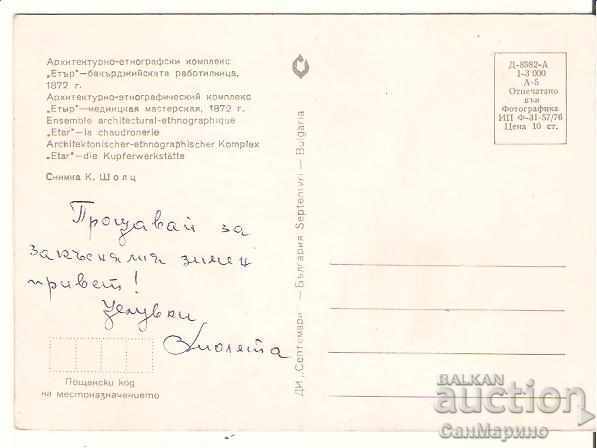 Архитектурно-етнографски комплекс
„Етър"—бакърджийската работилница,
1872 г.
Архитектурно-этнографический комплекс
„Етър"—медницкая мастерская, 1872 г.
Ensemble architectural-ethnographique
„Etar"—la chaudronerie
Architektonischer-ethnographischer Komplex
„Etar"—die Kupferwerkstätte
Снимка К. Шолц
Прощавай за
закъснелия зимен
привет!
Целувки
Виолета
Пощенски код
на местоназначението
ДИ „Септември" — България Septemvri — Bulgaria
Д-8582-А
1-3 000
А-5
Отпечатано
във
Фотографика
ИП Ф-31-57/76
Цена 10 ст.
BALKAN
auction
СанМарино